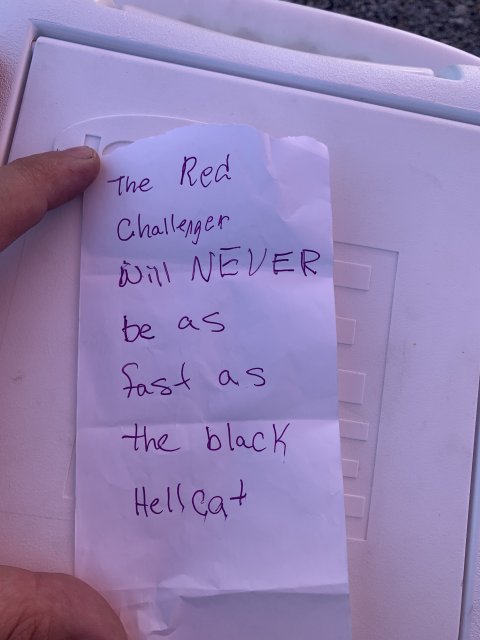 The Red
Challenger
Will NEVER
be as
fast as
the black
Hellcat